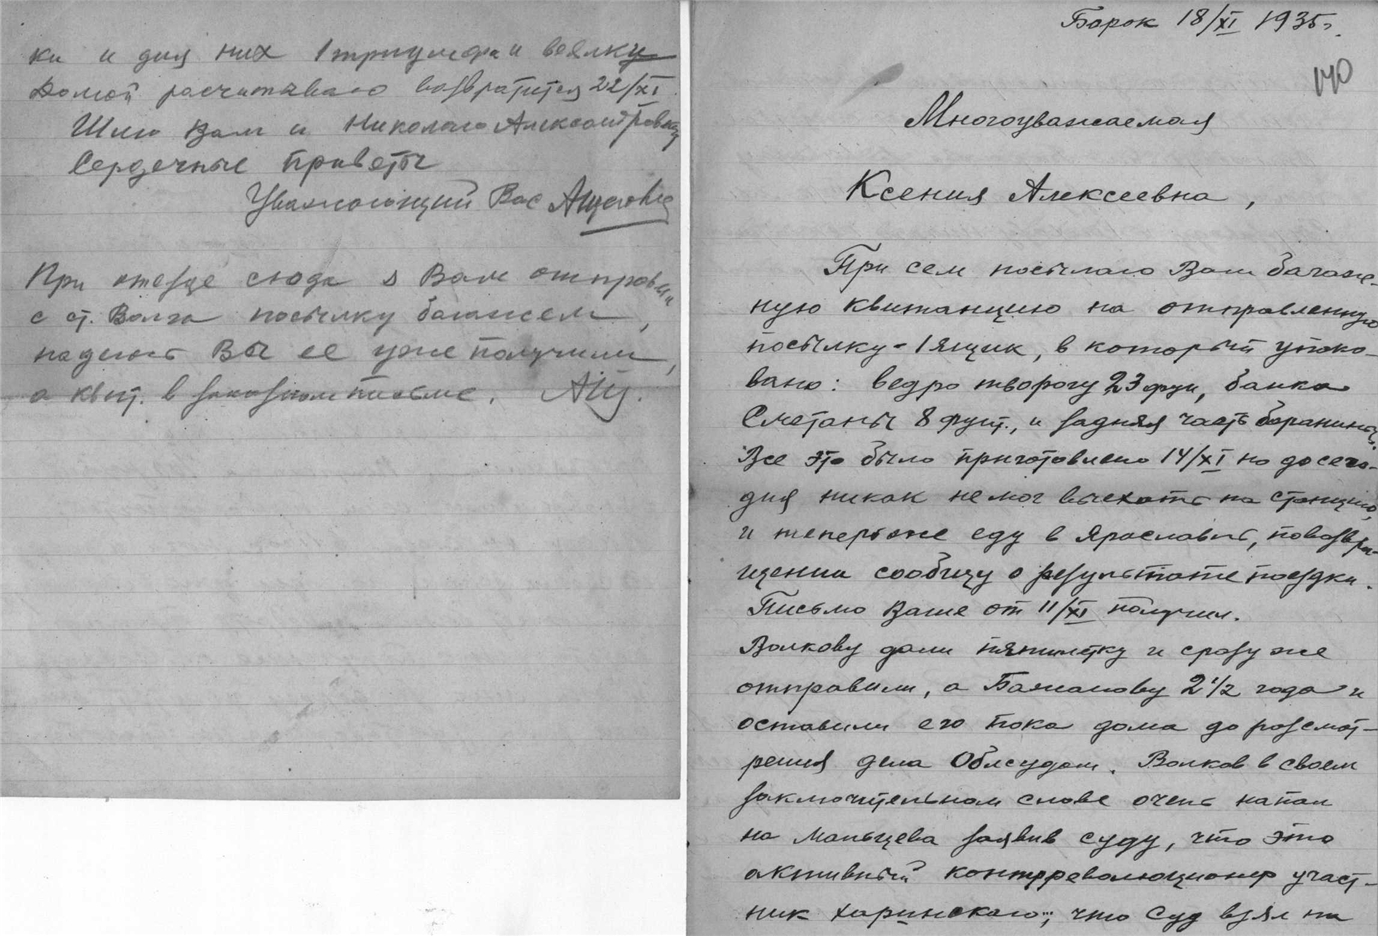 ки и для них 1 триумфа и веялку
Домой расчитываю возвратится 22/XI
Шлю Вам и Николаю Александровичу
Сердечные приветы
Уважающий Вас
При отезде сюда я Вам отправил
с ст. Волга посылку багажем,
надеюсь Вы ее уже получили,
а квит. в заказном письме. АЩ.
Борок 18/XI 1935 г.
140
Многоуважаемая
Ксения Алексеевна,
При сем посылаю Вам багаж-
ную квитанцию на отправленную
посылку - 1 ящик, в который упако-
вано: ведро творогу 23 фун, банка
Сметаны 8 фунт., и задняя часть баранины.
Все это было приготовлено 14/XI но до сего-
дня никак не мог выехать на станцию,
и теперь же еду в Ярославль, по возвра-
щении сообщу о результате поездки.
Письмо Ваше от 11/XI получил.
Волкову дали пятилетку и сразу же
отправили, а Бажанову 2 1/2 года и
оставили его пока дома до розсмот-
рения дела Облсудом. Волков в своем
заключительном слове очень напал
на Мальцева заявив суду, что это
активный контрреволюционер участ-
ник Харинского", что Суд взял на